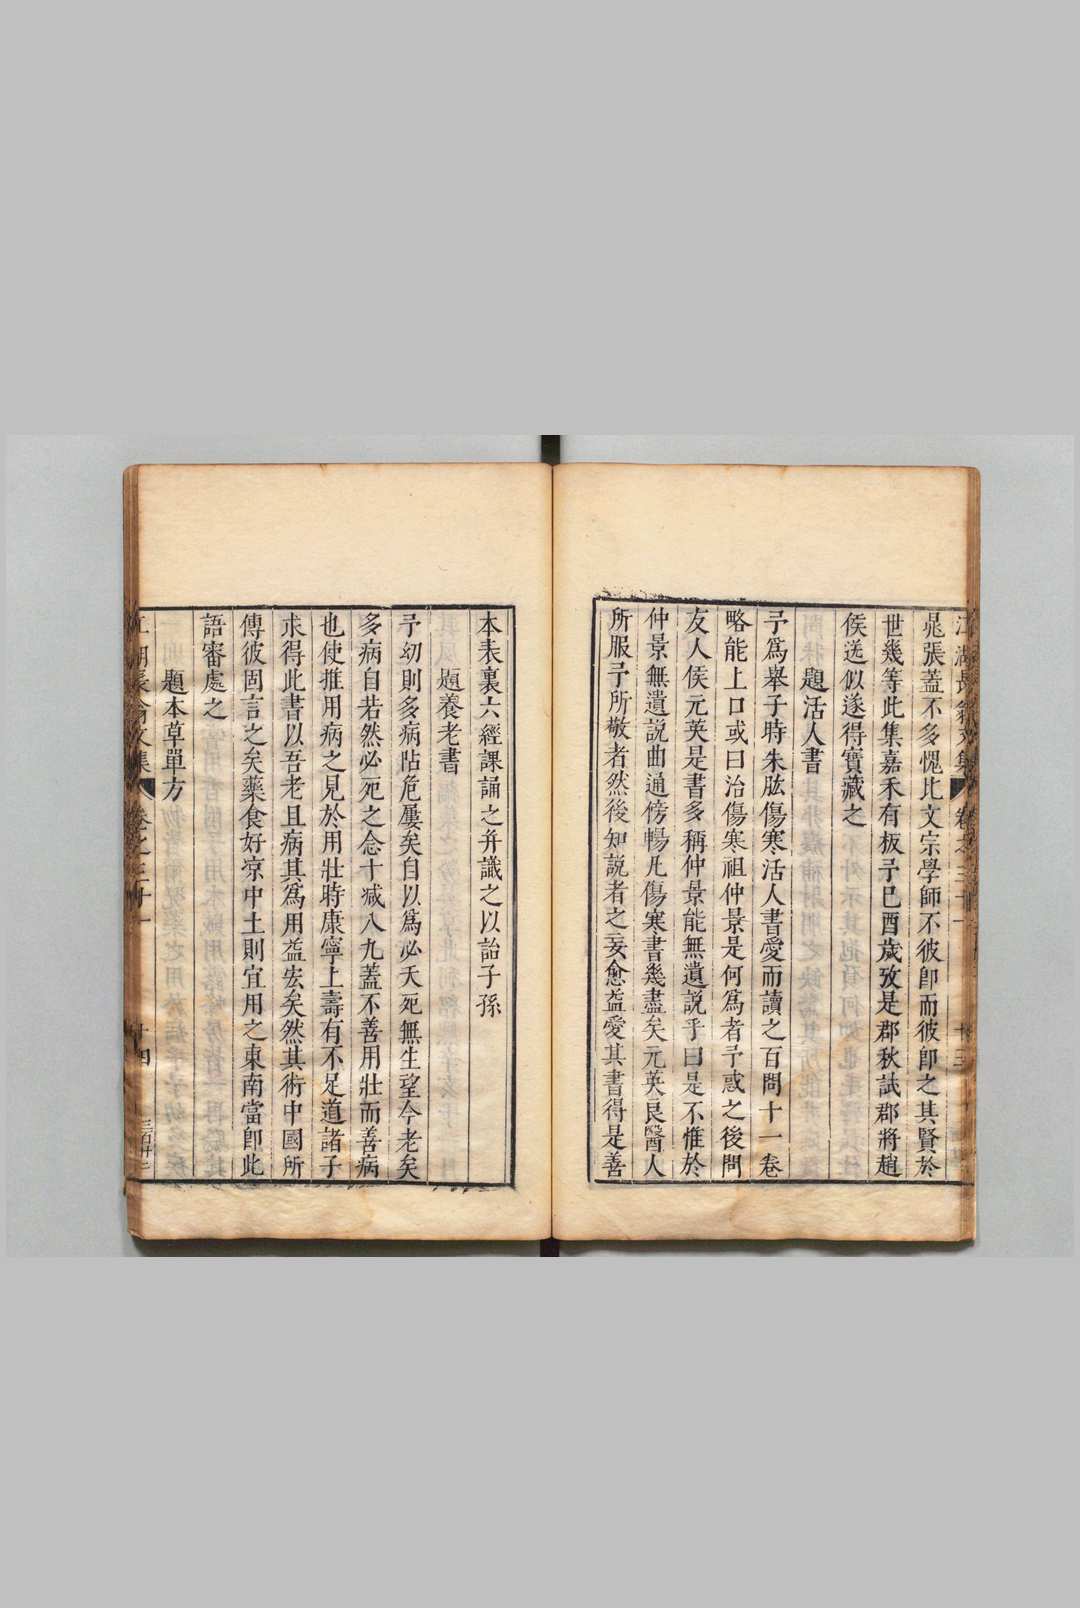 江湖長翁文集 卷之三十一 十三
晁張蓋不多愧比文宗學師不彼卽而彼卽之其賢於
世幾等此集嘉禾有板予巳酉歲攷是郡秋試郡將趙
侯送似遂得寶藏之
題活人書
予爲舉子時朱肱傷寒活人書愛而讀之百問十一卷
略能上口或曰治傷寒祖仲景是何爲者予惑之後問
友人侯元英是書多稱仲景能無遺說乎曰是不惟於
仲景無遺說曲通傍暢凡傷寒書幾盡矣元英良醫人
所服予所敬者然後知說者之妄愈益愛其書得是善
本表裏六經課誦之幷識之以詒子孫
題養老書
予幼則多病阽危屢矣自以爲必夭死無生望今老矣
多病自若然必死之念十减八九蓋不善用壯而善病
也使推用病之見於用壯時康寧上壽有不足道諸子
求得此書以吾老且病其爲用益宏矣然其術中國所
傳彼固言之矣藥食好凉中土則宜用之東南當卽此
語審處之
題本草單方
江湖長翁文集 卷之三十一 十四 三百廿二